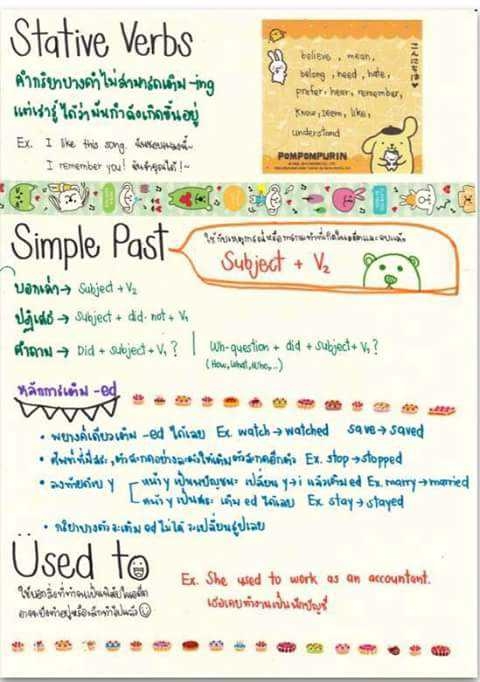 Stative Verbs
คำกริยาบางคำไม่สามารถเติม -ing
แต่เรารู้ได้ว่ามันกำลังเกิดขึ้นอยู่
Ex. I like this song. ฉันชอบเพลงนี้~
I remember you! ฉันจำคุณได้!~
believe, mean,
belong, need, hate,
prefer, hear, remember,
know, seem, like,
understand
こんにちわ
POMPOMPURIN
Simple Past
ใช้กับเหตุการณ์หรือการกระทำที่เกิดในอดีตและจบแล้ว
Subject + V₂
บอกเล่า → Subject + V₂
ปฏิเสธ → Subject + did-not + V₁
คำถาม → Did + subject + V₁ ? | Wh-question + did + subject + V₁ ?
(How, What, Who,...)
หลักการเติม -ed
• พยางค์เดียวเติม -ed ได้เลย Ex. watch → watched save → saved
• ศัพท์ที่มีสระ, ตัวสะกดอย่างละตัวให้เติมตัวสะกดอีกตัว Ex. stop → stopped
• ลงท้ายด้วย y หน้า y เป็นพยัญชนะ เปลี่ยน y → i แล้วเติม ed Ex. marry → married
หน้า y เป็นสระ เติม ed ได้เลย Ex. stay → stayed
• กริยาบางตัวจะเติม ed ไม่ได้ จะเปลี่ยนรูปเลย
Used to
ใช้บอกสิ่งที่ทำจนเป็นนิสัยในอดีต
อาจจะยังทำอยู่หรือเลิกทำไปแล้ว
Ex. She used to work as an accountant.
เธอเคยทำงานเป็นนักบัญชี